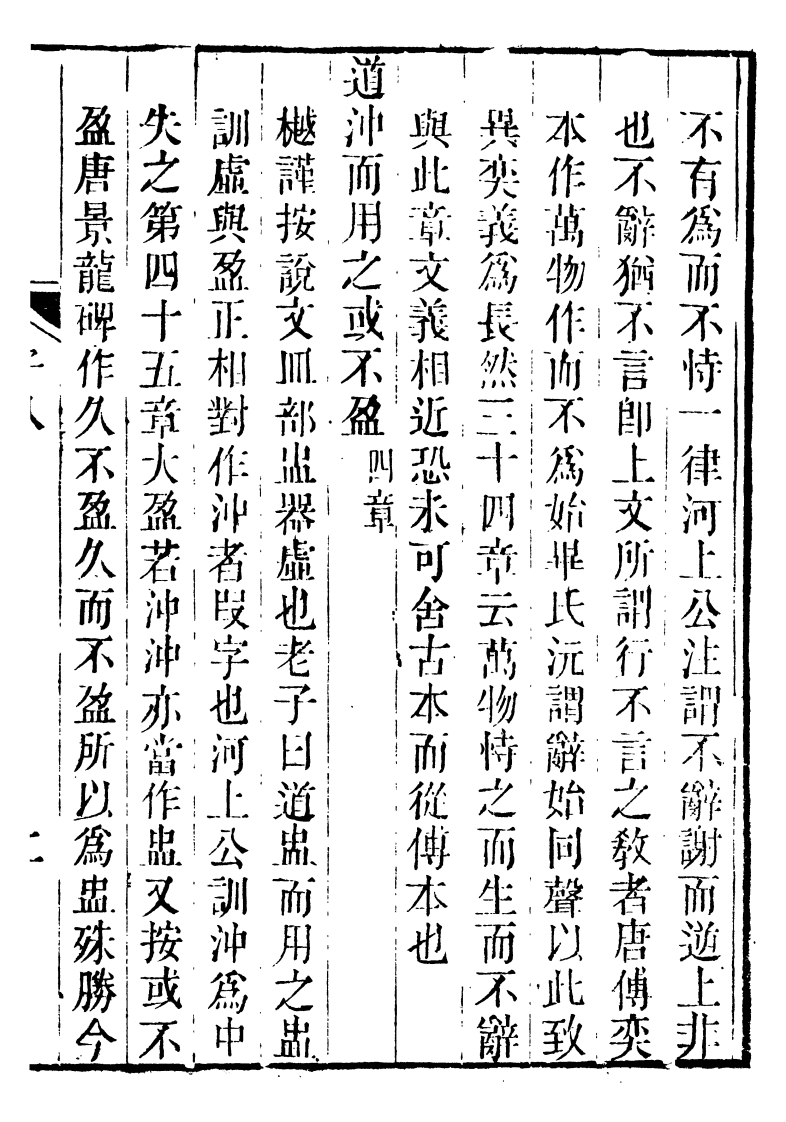 不有爲而不恃一律河上公注謂不辭謝而逆上非
也不辭猶不言卽上文所謂行不言之教者唐傅奕
本作萬物作而不爲始畢氏沅謂辭始同聲以此致
異奕義爲長然三十四章云萬物恃之而生而不辭
與此章文義相近恐未可舍古本而從傅本也
道沖而用之或不盈四章
樾謹按說文皿部盅器虛也老子曰道盅而用之盅
訓虛與盈正相對作沖者叚字也河上公訓沖爲中
失之第四十五章大盈若沖沖亦當作盅又按或不
盈唐景龍碑作久不盈久而不盈所以爲盅殊勝今